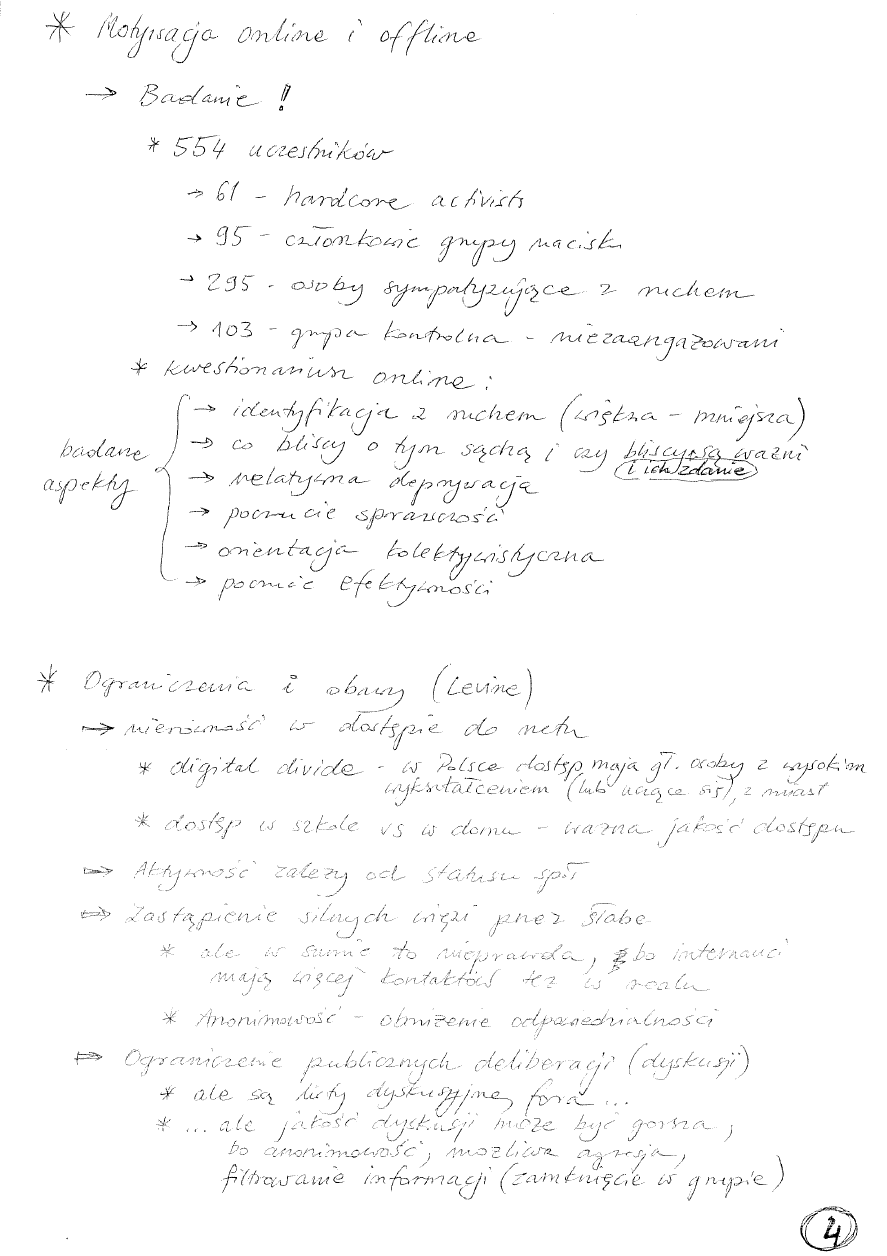 * Motywacja online i offline
→ Badanie !
* 554 uczestników
→ 61 - hardcore activists
→ 95 - członkowie grupy nacisku
→ 295 - osoby sympatyzujące z ruchem
→ 103 - grupa kontrolna - niezaangażowani
* kwestionariusz online :
→ identyfikacja z ruchem (większa - mniejsza)
→ co bliscy o tym sądzą i czy bliscy są ważni
i ich zdanie
badane aspekty
→ relatywna deprywacja
→ poczucie sprawczości
→ orientacja kolektywistyczna
→ poczucie efektywności
* Ograniczenia i obawy (Levine)
→ nierówność w dostępie do netu
* digital divide - w Polsce dostęp mają gł. osoby z wysokim
wykształceniem (lub uczące się), z miast
* dostęp w szkole vs w domu - ważna jakość dostępu
⇒ Aktywność zależy od statusu społ
⇒ Zastąpienie silnych więzi przez słabe
* ale w sumie to nieprawda, bo internauci
mają więcej kontaktów też w realu
* Anonimowość - obniżenie odpowiedzialności
⇒ Ograniczenie publicznych deliberacji (dyskusji)
* ale są listy dyskusyjne, fora ...
* ... ale jakość dyskusji może być gorsza,
bo anonimowość, możliwa agresja,
filtrowanie informacji (zamknięcie w grupie)
4